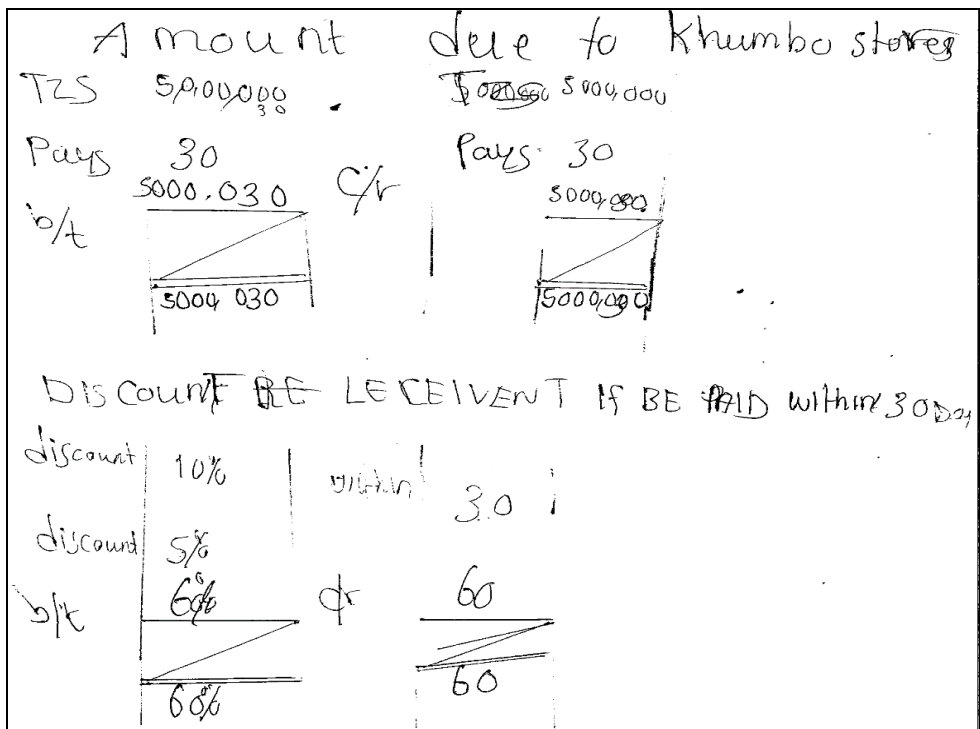 Amount due to Khumbo stores
TZS 50,00,000 5000,000
30
Pays 30 Pays 30
5000.030 C/r 5000,000.
b/t
5000,030 5000,000
DISCOUNT RE LECEIVENT If BE PAID within 30 Day
discount 10% within 30
discount 5%
60% 60
b/t cr
60% 60